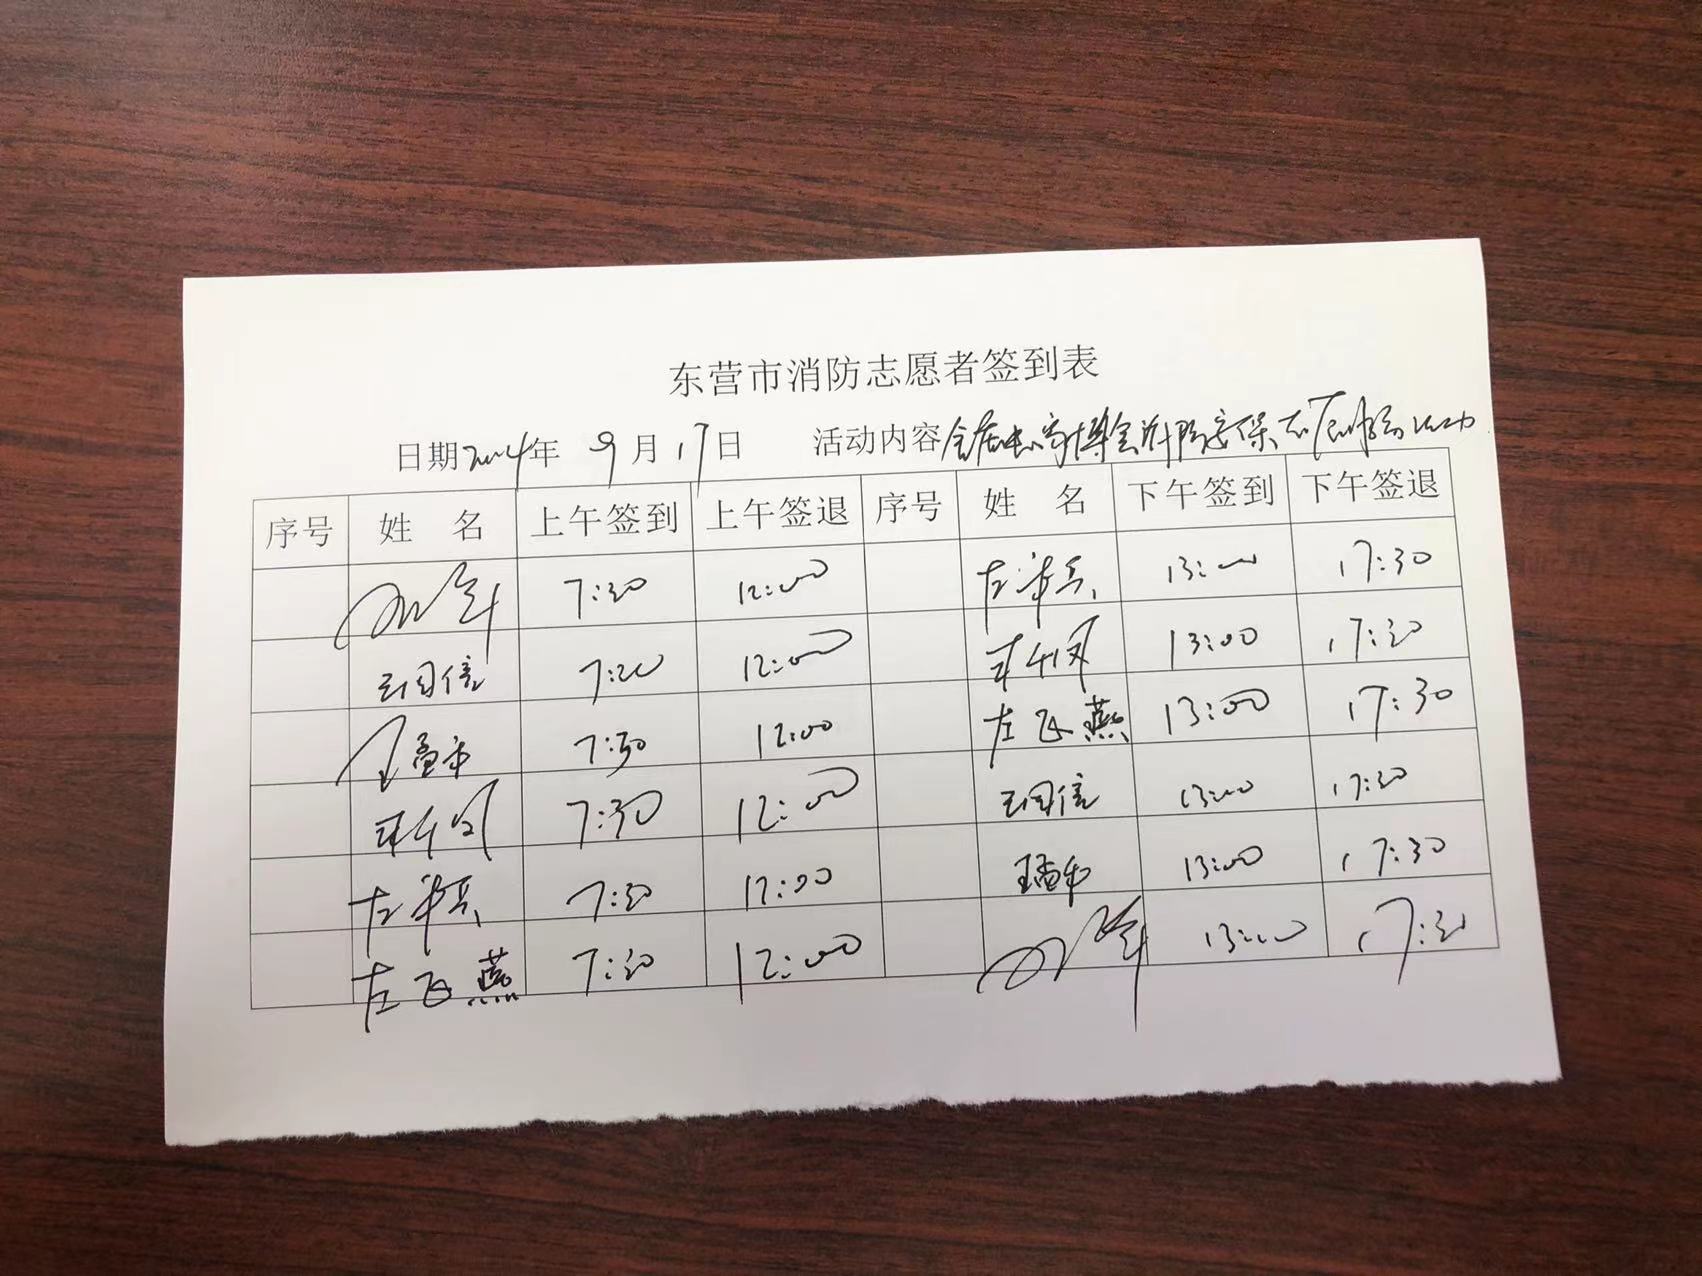 东营市消防志愿者签到表
日期2024年 9月17日 活动内容 家博会消防安保志愿服务活动
序号 姓 名 上午签到 上午签退 序号 姓 名 下午签到 下午签退
7:30 12:00 左军兵 13:00 17:30
王国信 7:20 12:00 13:00 17:30
7:30 12:00 左飞燕 13:00 17:30
7:30 12:00 王国信 13:00 17:30
左军兵 7:30 12:00 13:00 17:30
左飞燕 7:30 12:00 13:00 17:30